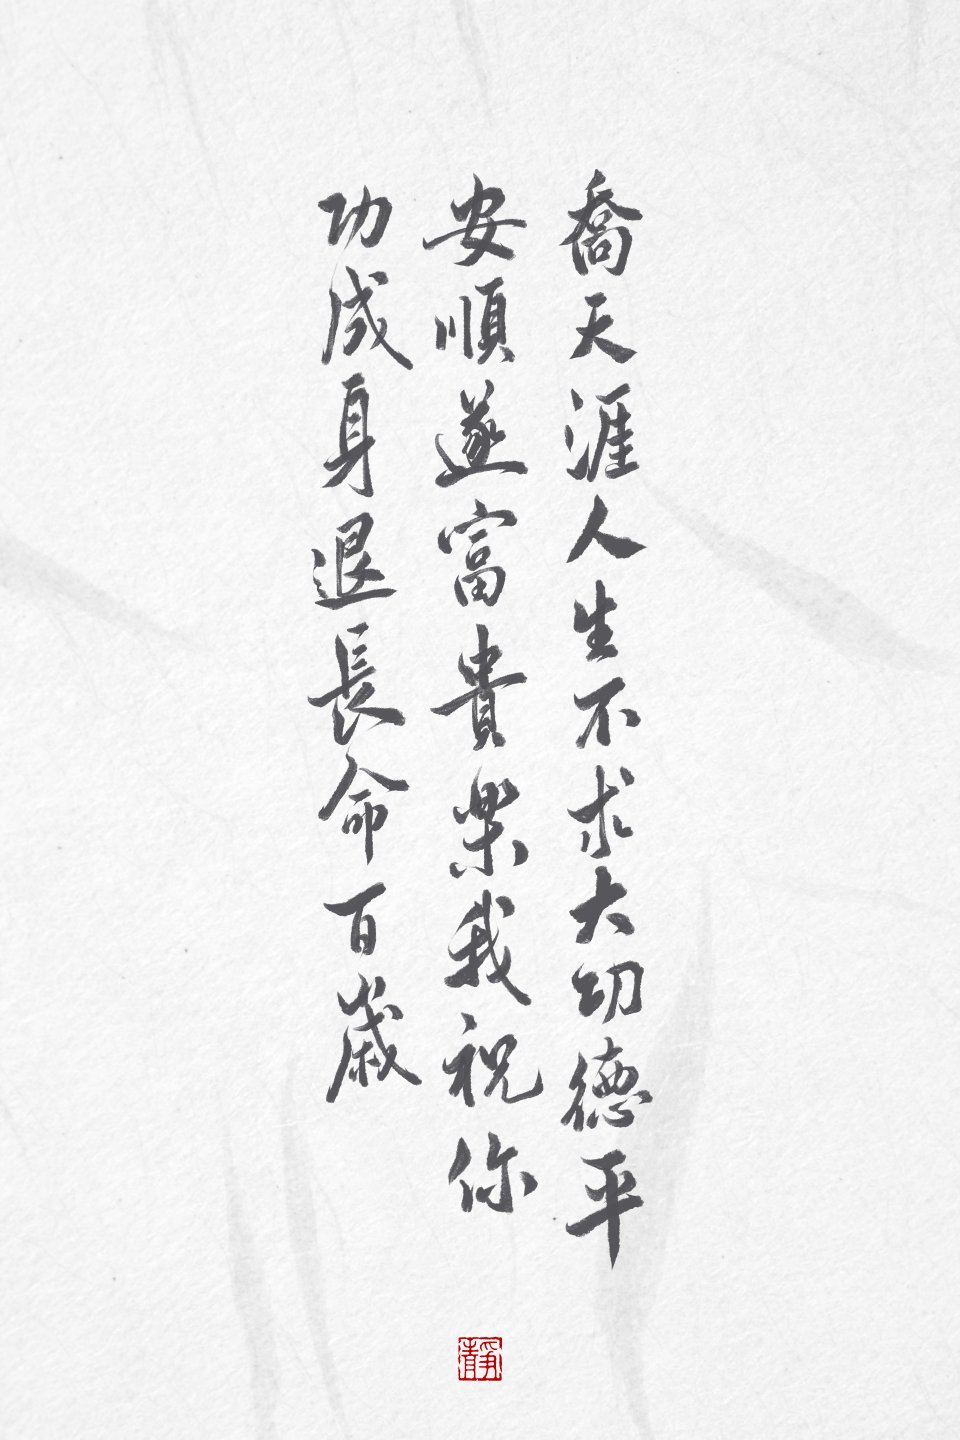 喬天涯人生不求大功德平
安順遂富貴樂我祝你
功成身退長命百歲
靜